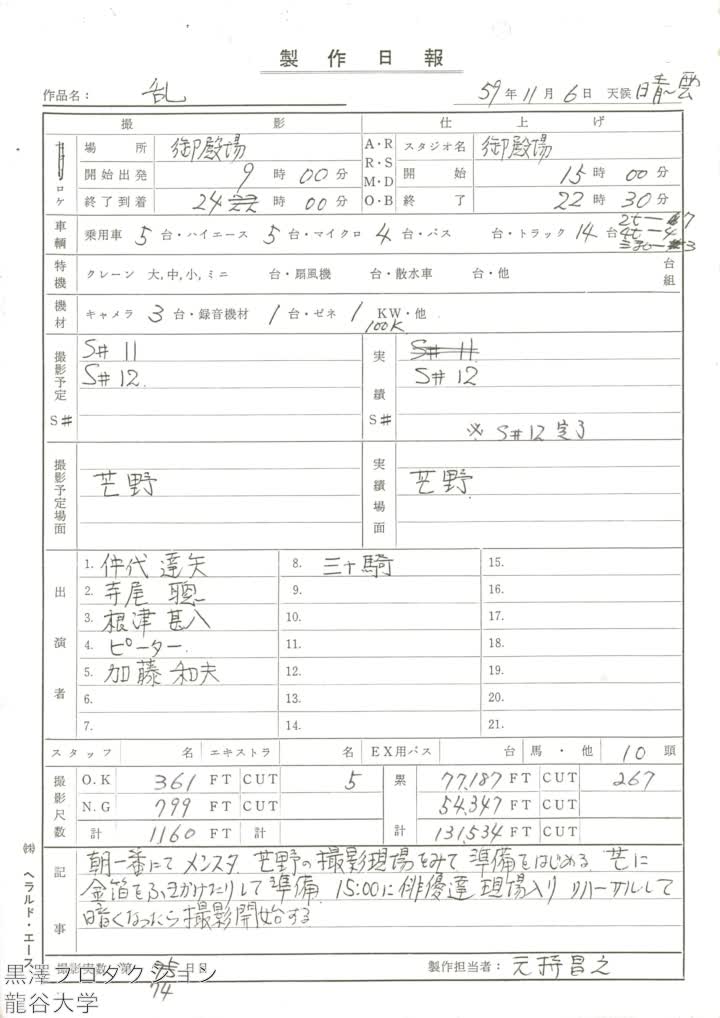 製作日報
作品名: 乱 59年11月6日 天候 晴〜雲
撮影 仕上げ
ロケ 場所 御殿場 A・R R・S M・D O・B スタジオ名 御殿場
開始出発 9時00分 開始 15時00分
終了到着 24時00分 終了 22時30分
車輌 乗用車 5台・ハイエース 5台・マイクロ 4台・バス 台・トラック 14台 2t—7 4t—4
特機 クレーン 大,中,小,ミニ 台・扇風機 台・散水車 台・他 台組
機材 キャメラ 3台・録音機材 1台・ゼネ 1 KW・他
100K
撮影予定 S# S#11 実績 S# S#11
S#12. S#12
※ S#12 完了
撮影予定場面 芒野 実績場面 芒野
出演者 1. 仲代達矢 8. 三十騎 15.
2. 寺尾聰 9. 16.
3. 根津甚八 10. 17.
4. ピーター 11. 18.
5. 加藤和夫 12. 19.
6. 13. 20.
7. 14. 21.
スタッフ 名 エキストラ 名 EX用バス 台 馬・他 10頭
撮影尺数 O.K 361 FT CUT 5 累計 77,187 FT CUT 267
N.G 799 FT 54,347 FT CUT
計 1,160 FT 計 131,534 FT CUT
記事 朝一番にて メンスタ. 芒野の撮影現場をみて 準備をはじめる. 芒に
金箔をふきかけたりして準備. 15:00に俳優達現場入り リハーサルして
暗くなったら撮影開始する
撮影実数 第 日目 製作担当者: 元持昌之
74
㈱ ヘラルド・エース
黒澤プロダクション
龍谷大学